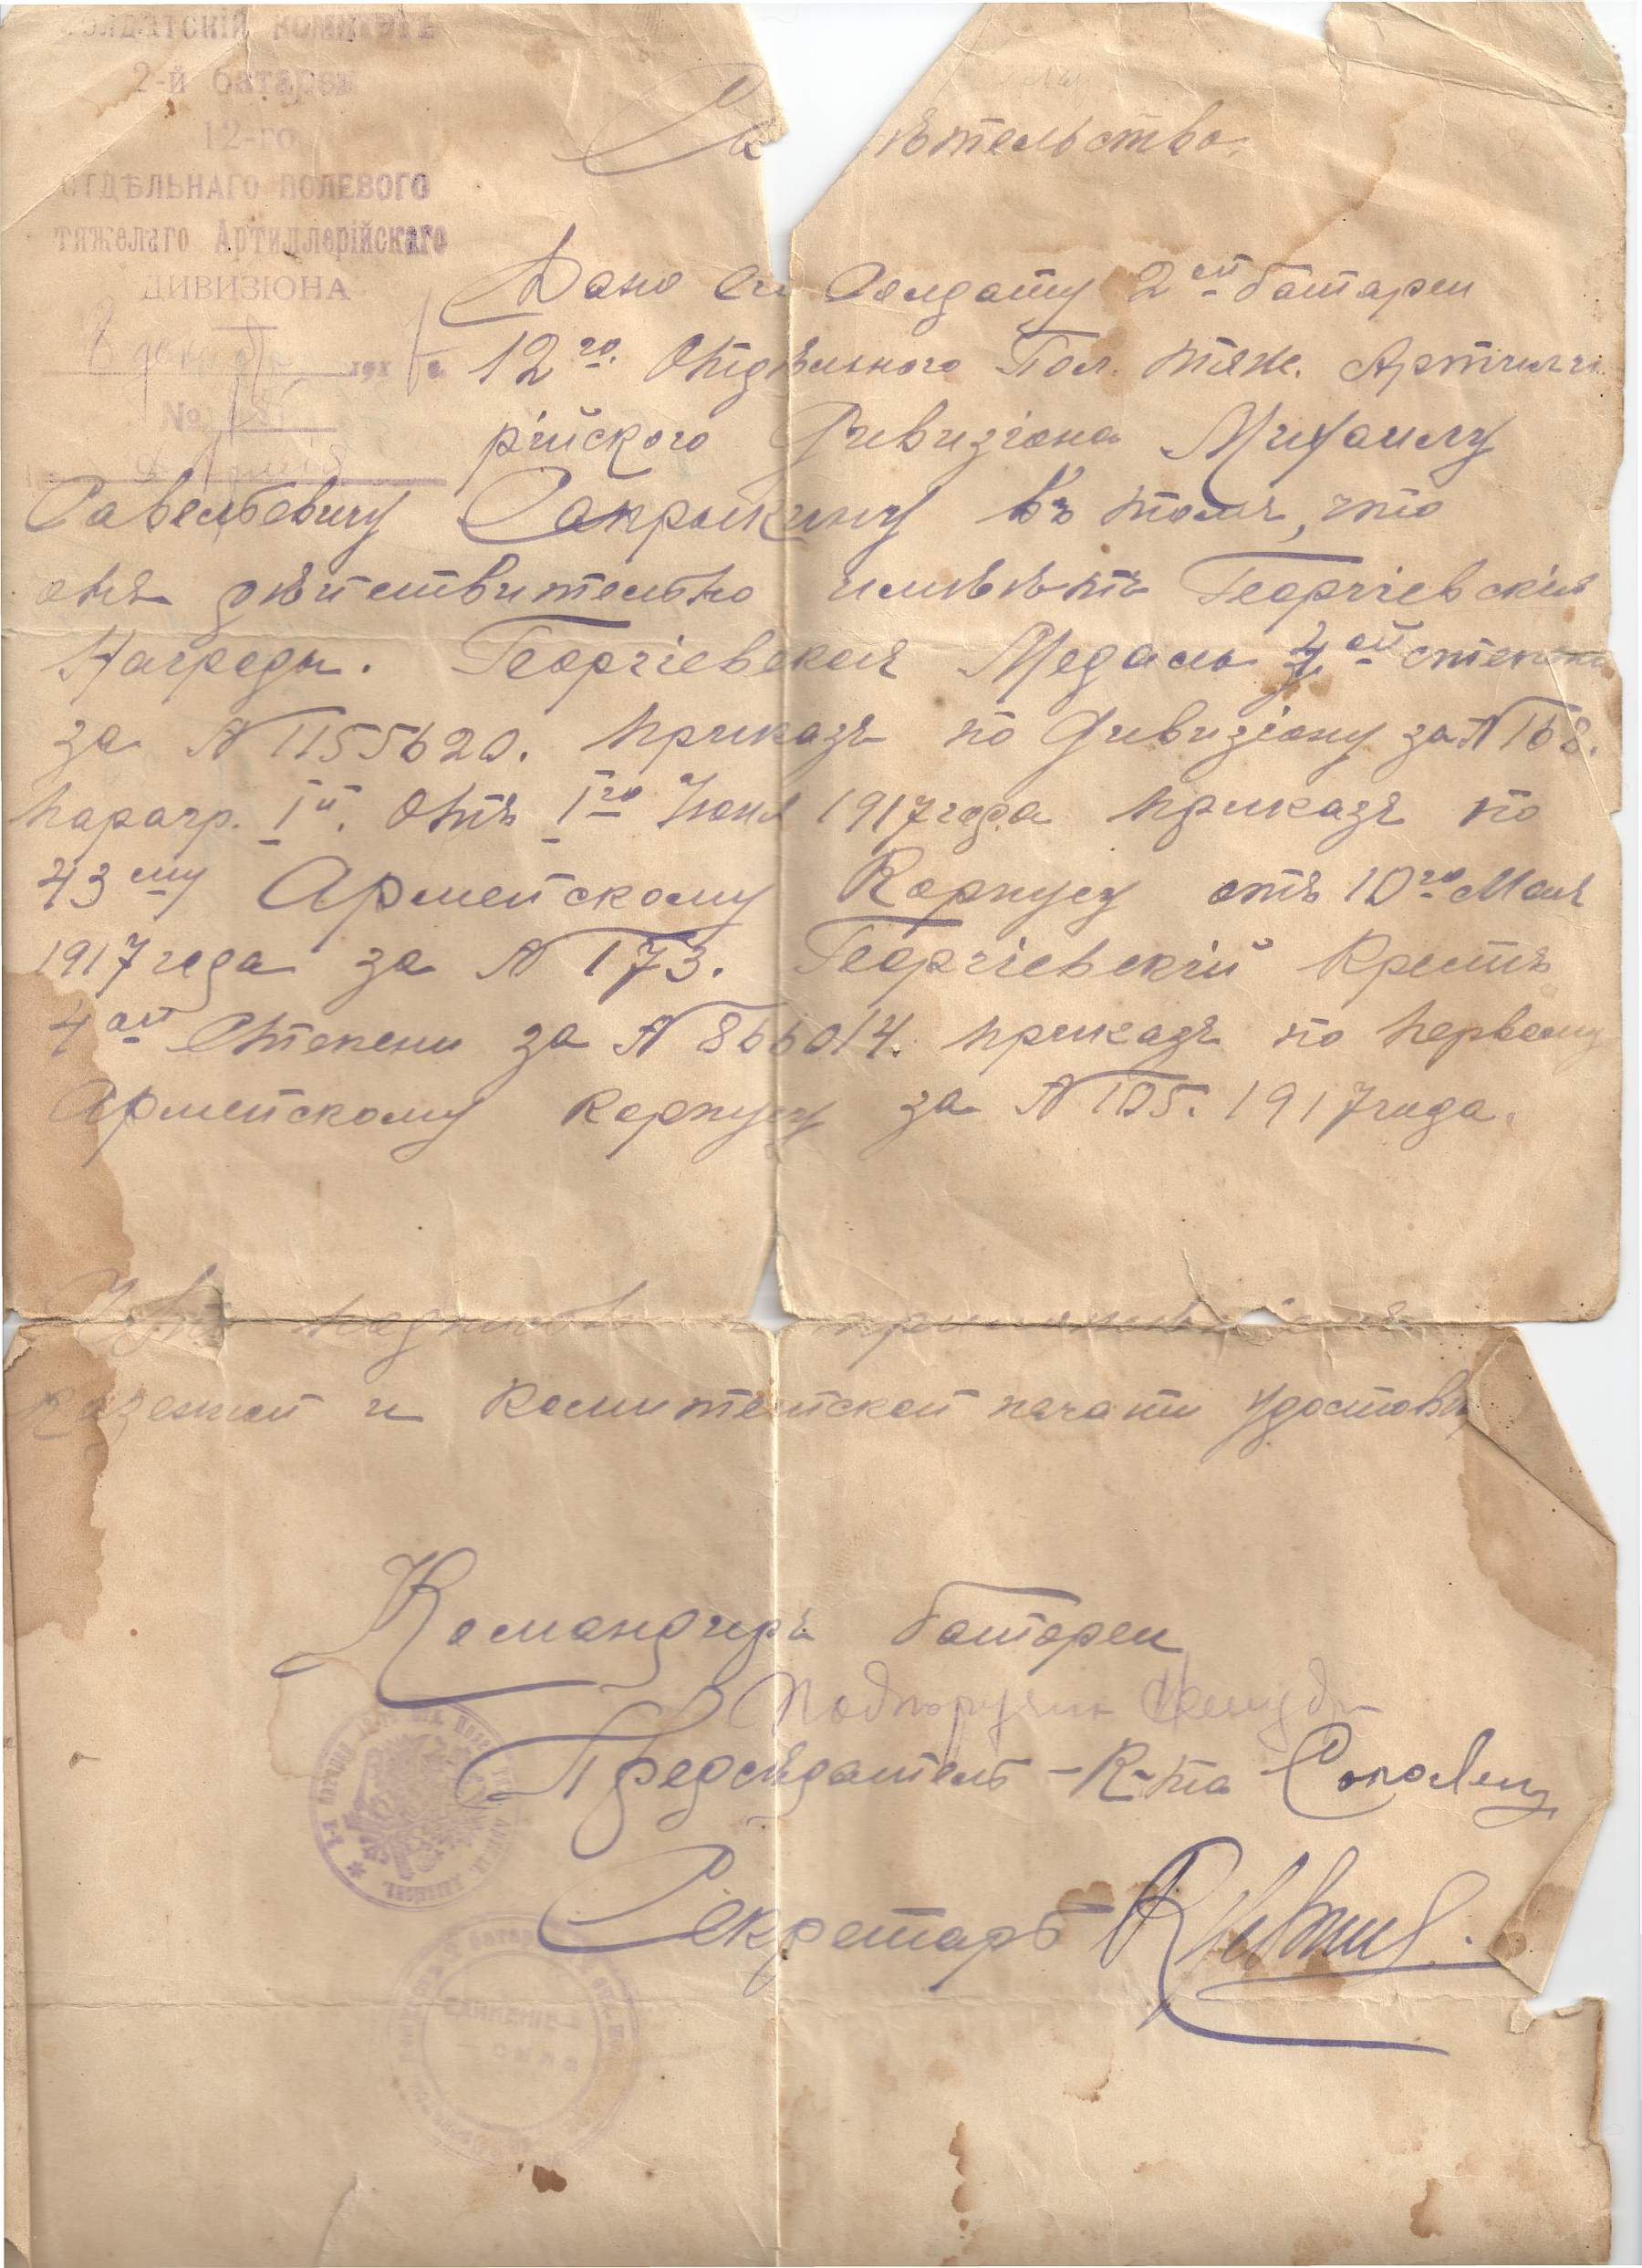 СОЛДАТСКІЙ КОМИТЕТЪ
2-й батареи
12-го
ОТДѢЛЬНАГО ПОЛЕВОГО
тяжелаго Артиллерійскаго
ДИВИЗІОНА
8 декабр 191 г.
№
Св ѣтельство.
Дано Сіе Солдату 2ей батареи
12го. Отдѣльного Пол. тяж. Артилле
рійского Дивизіона Михаилу
Савельевичу Сапрыкину въ томъ, что
онъ дѣйствительно имѣѣтъ Георгіевскія
Награды. Георгіевская Медаль 4ой степени
за № 1155620. приказъ по Дивизіону за № 168.
парагр. 1й. отъ 1го Июня 1917 года приказъ по
43му Армейскому Корпусу отъ 10го Мая
1917 года за № 173. Георгіевскій Крестъ
4ой Степени за № 866014. приказъ по первому
Армейскому Корпусу за № 105. 1917 года.
казенной и Комитетской печати удостовѣ
Командиръ батареи
Подпоручик
Предсѣдатель К-та
Секретарь